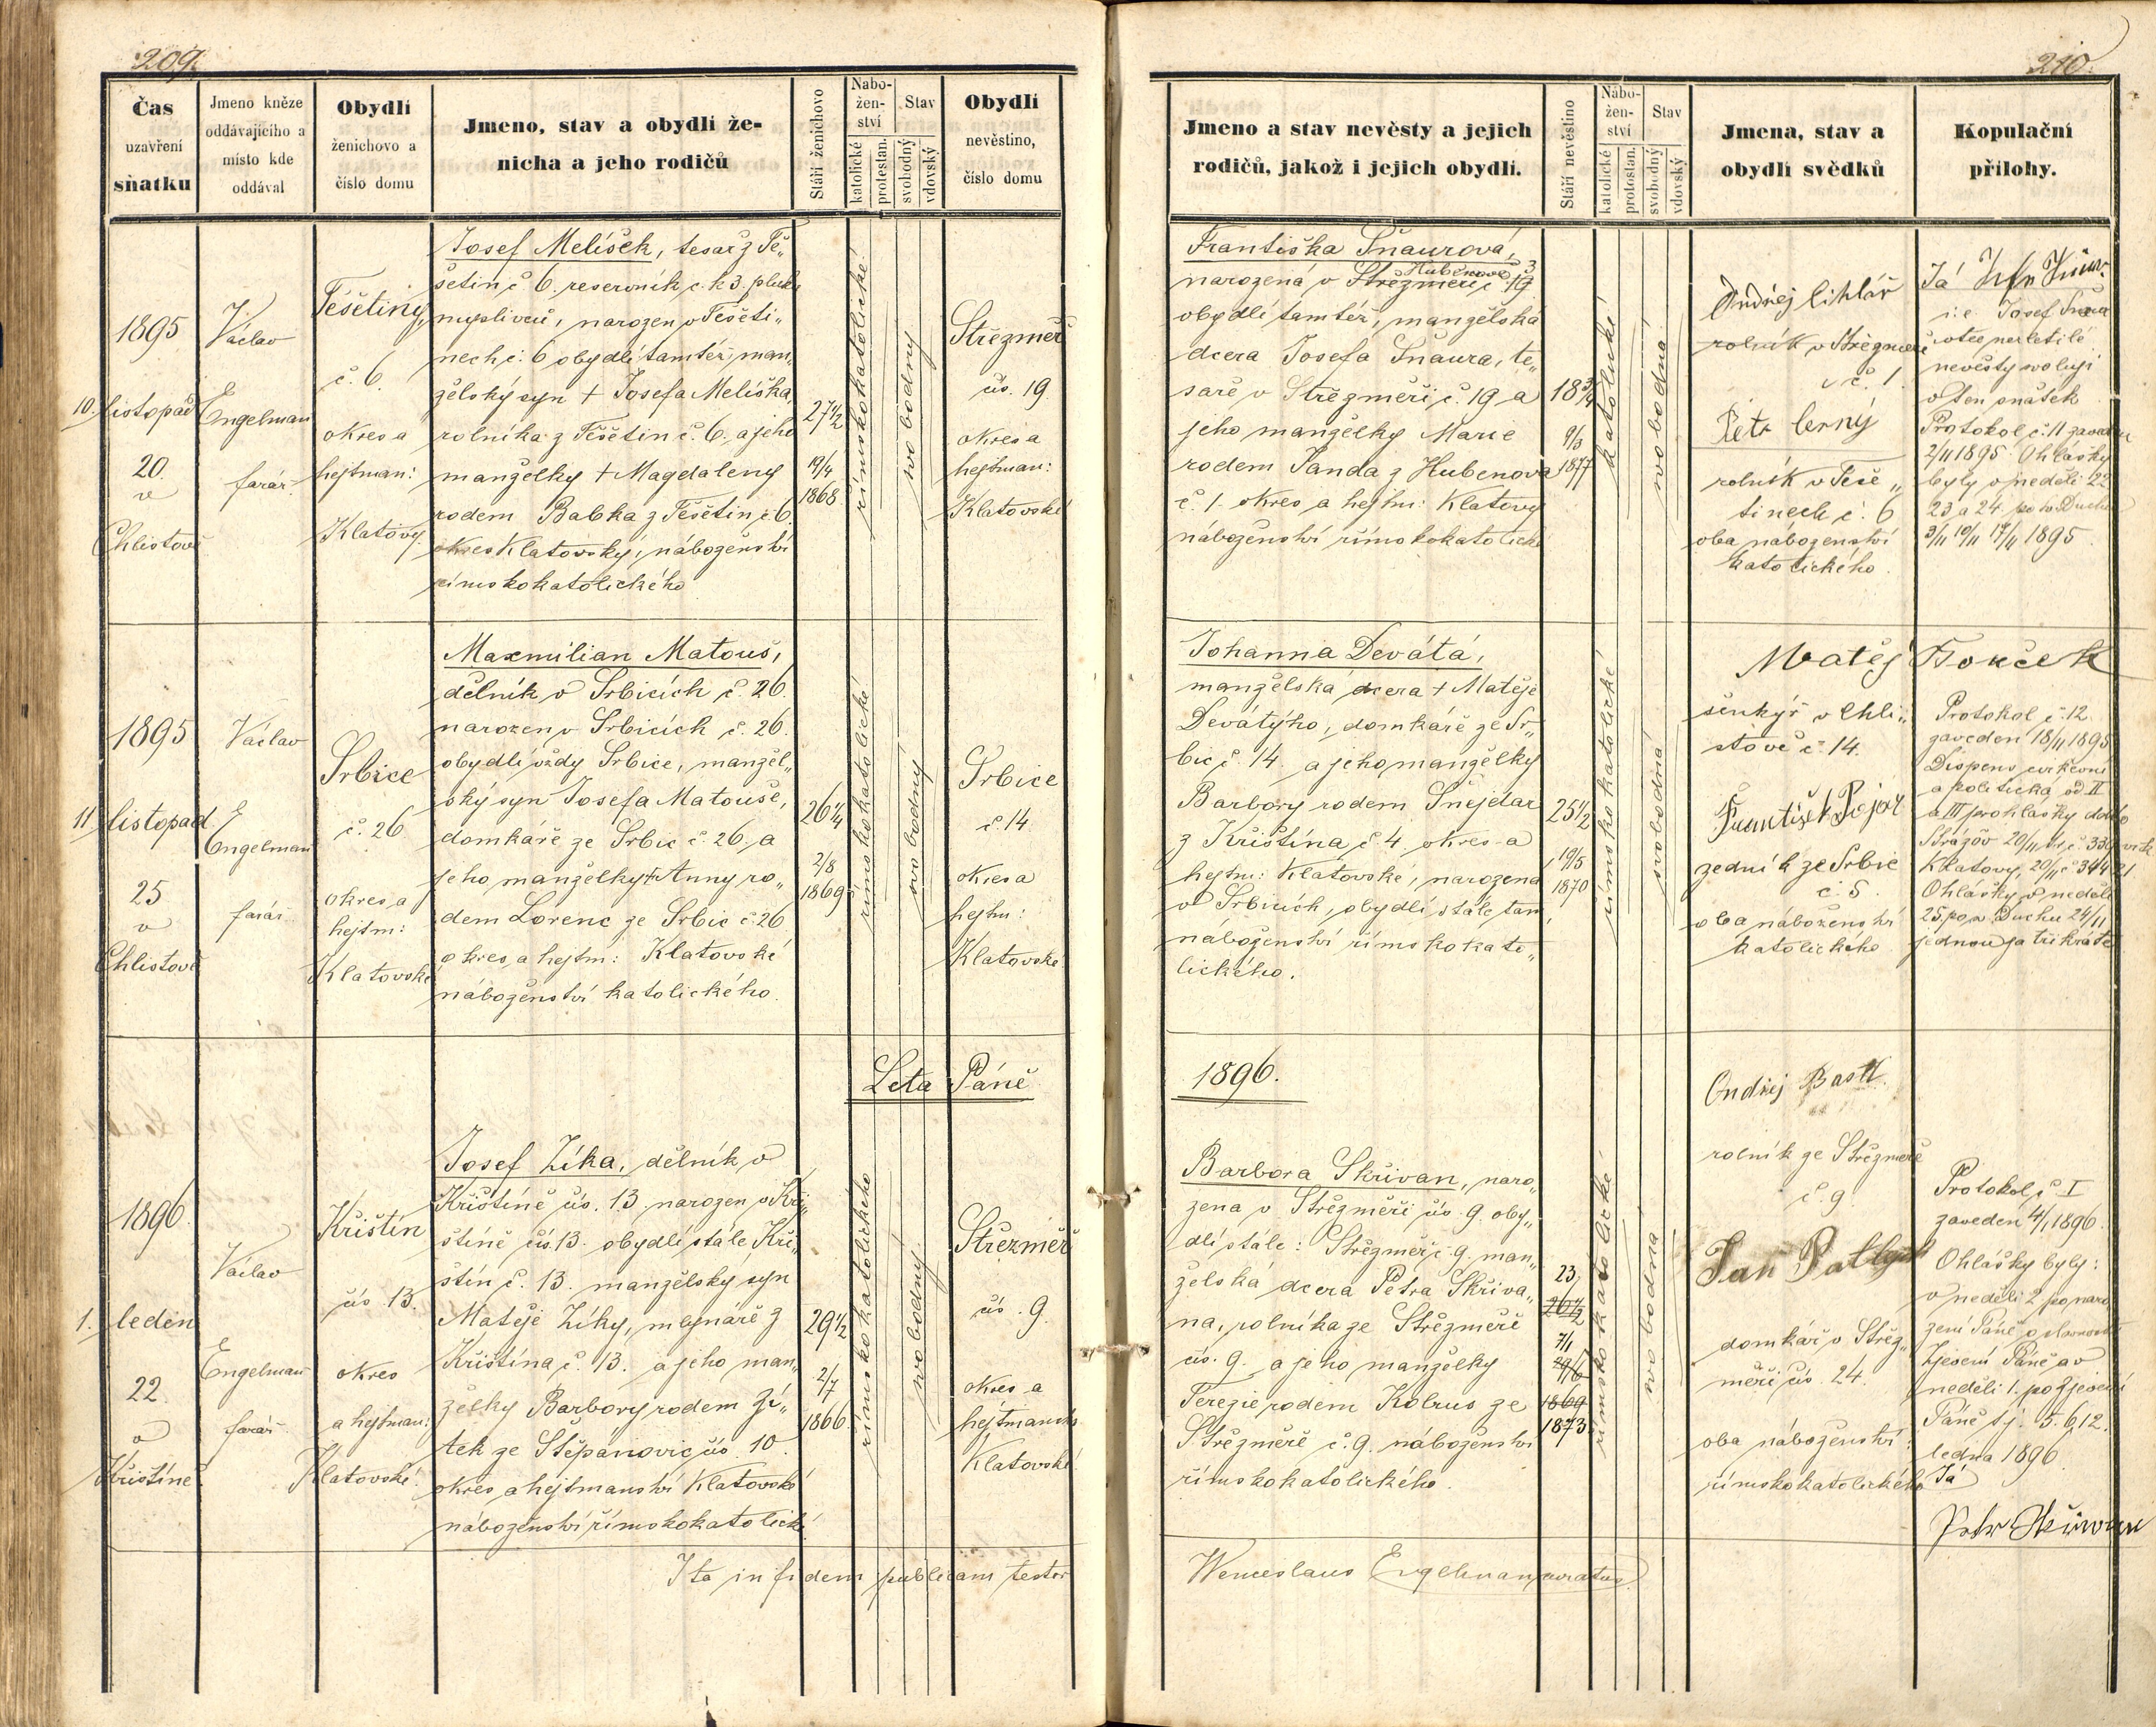 209.
Čas
uzavření
sňatku
Jmeno kněze
oddávajícího a
místo kde
oddával
Obydlí
ženichovo a
číslo domu
Jmeno, stav a obydlí že-
nicha a jeho rodičů
Stáří ženichovo
Nábo-
žen-
ství
katolické
protestan.
Stav
svobodný
vdovský
Obydlí
nevěstino,
číslo domu
1895
10. listopad
20.
v
Chlistově
Václav
Engelman
farář.
Tešetiny,
č. 6.
okres a
hejtman:
Klatovy.
Josef Melíšek, tesař z Te„
šetin č 6. reservník c. k 3. pluku
myslivců, narozen v Tešeti„
nech č. 6 obydlí tamtéž, man„
želský syn + Josefa Melíška,
rolníka z Tešetin č. 6., a jeho
manželky + Magdaleny
rodem Babka z Tešetin č 6.
okres Klatovský, náboženství
římskokatolického
27 1/2
19/4
1868
římskokatolické
svobodný
Střezměř
čís. 19.
okres a
hejtman:
Klatovské
1895
11. listopad
25
v
Chlistově
Václav
Engelman
farář.
Srbice
č. 26.
okres, a
hejtm:
Klatovské
Maxmilian Matouš,
dělník v Srbicích č. 26.
narozen v Srbicích č. 26.
obydlí vždy Srbice, manžel„
ský syn Josefa Matouše,
domkáře ze Srbic č. 26. a
jeho manželky + Anny ro„
dem Lorenc ze Srbic č 26.
okres a hejtm: Klatovské
náboženství katolického.
26 1/4
2/8
1869
římskokatolické
svobodný
Srbice
č. 14
okres a
hejtm:
Klatovské
Leta Páně
1896.
1. leden
22.
v
Křištíně.
Václav
Engelman
farář.
Křištín
čís 13.
okres
a hejtman:
Klatovské.
Josef Zíka, dělník v
Křištíně čís. 13. narozen v Kři„
štíně čís. 13. obydlí stále Kři„
štín č. 13. manželský syn
Matěje Zíky, mlynáře z
Křištína č. 13. a jeho man„
želky Barbory rodem Zí„
tek ze Štěpanovic čís. 10.
okres a hejtmanství Klatovské
náboženství římskokatolické
29 1/2
2/7
1866
římskokatolického
svobodný.
Střezměř
čís. 9.
okres a
Klatovské
Ita in fidem publicam testor
210.
Jmeno a stav nevěsty a jejich
rodičů, jakož i jejich obydlí.
Stáří nevěstino
Nábo-
žen-
ství
katolické
protestan.
Stav
svobodný
vdovský
Jmena, stav a
obydlí svědků
Kopulační
přílohy.
Františka Šnaurová,
Hubenově č 3
narozená v Střezměři č. 19
obydlí tamtéž, manželská
dcera Josefa Šnaura, te„
saře v Střezměři č. 19 a
jeho manželky Marie
rodem Janda z Hubenova
č. 1. okres a hejtm: Klatovy
náboženství římskokatolické
18 3/4
9/3
1877
katolické
svobodná
Ondřej Cihlář
rolník v Střezměři
č. 1.
Petr Černý
rolník v Teše„
tinech č. 6
oba náboženství
katolického.
Já
i: e. Josef Šnaur
otec nezletilé
nevěsty svoluji
v ten sňatek
Protokol č. 11 zaveden
2/11 1895. Ohlášky
byly v neděli 22
23 a 24. po sv. Duchu
3/11 10/11 17/11 1895
Johanna Devátá,
manželská dcera + Matěje
Devátýho, domkáře ze Sr„
bic č. 14. a jeho manželky
Barbory rodem Šnejdar
z Křištína č. 4. okres a
hejtm: Klatovské, narozena
v Srbicích, obydlí stále tam,
náboženství římskokato„
lického.
25 1/2
19/5
1870
římskokatolické
svobodná
Matěj Touček
šenkýř v Chli„
stově č. 14.
František Pojar
zedník ze Srbic
č. 5.
oba náboženství
katolického
Protokol č. 12.
zaveden 18/11 1895
Dispens církevní
a politická od II
a III prohlášky ddto
Strážov 20/11
Klatovy, 20/11 č 34421
Ohlášky v neděli
25 po sv. Duchu 24/11
jednou za třikráte
1896.
Barbora Skřivan, naro„
zena v Střezměři čís. 9. oby„
dlí stále: Střezměř č. 9. man„
želská dcera Petra Skřiva„
na, rolníka ze Střezměře
čís. 9. a jeho manželky
Terezie rodem Kolrus ze
Střezměře č. 9. náboženství
římskokatolického.
23
26 1/2
7/1
29/6
1869
1873
římskokatolické
svobodná
Ondřej Bastl.
rolník ze Střezměře
č. 9.
domkář v Střez„
měři čís. 24.
oba náboženství:
římskokatolického
Protokol č. I
zaveden 4/1 1896.
Ohlášky byly:
v neděli 2 po naro„
zení Páně v slavnost
Zjevení Páně a v
neděli 1. po Zjevení
Páně t. j. 5. 6 12.
ledna 1896.
Já
Petr Skřivan
Wenceslaus Engelman curatus.